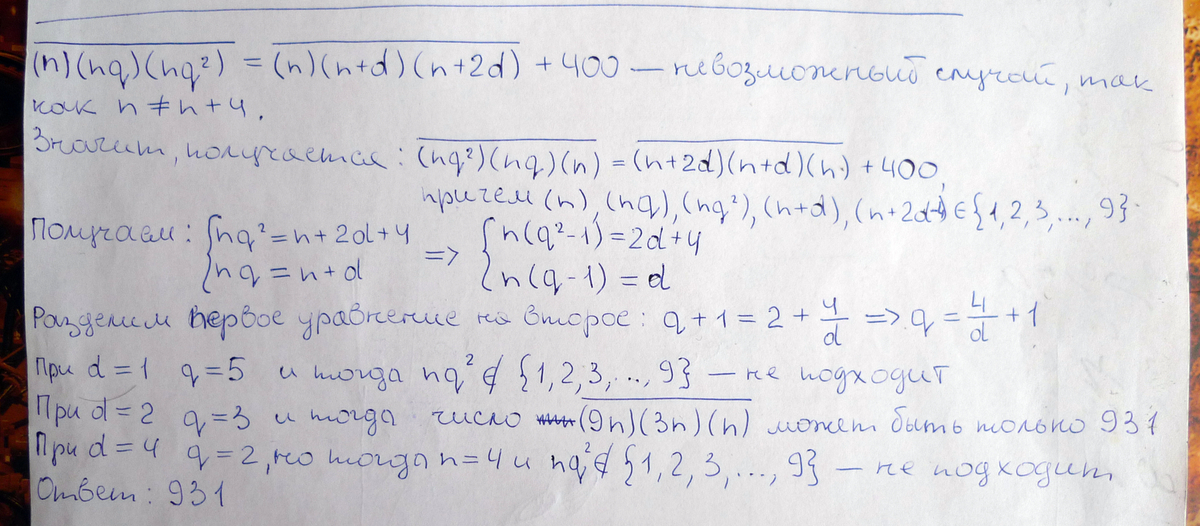 (n)(nq)(nq²) = (n)(n+d)(n+2d) + 400 — невозможный случай, так
как n ≠ n + 4.
Значит, получается: (nq²)(nq)(n) = (n+2d)(n+d)(n) + 400,
причем (n), (nq), (nq²), (n+d), (n+2d) ∈ {1, 2, 3, ..., 9}
Получаем: { nq² = n + 2d + 4 => { n(q²-1) = 2d + 4
{ nq = n + d { n(q-1) = d
Разделим первое уравнение на второе: q + 1 = 2 + 4/d => q = 4/d + 1
При d = 1 q = 5 и тогда nq² ∉ {1, 2, 3, ..., 9} — не подходит
При d = 2 q = 3 и тогда число (9n)(3n)(n) может быть только 931
При d = 4 q = 2, но тогда n = 4 и nq² ∉ {1, 2, 3, ..., 9} — не подходит
Ответ: 931